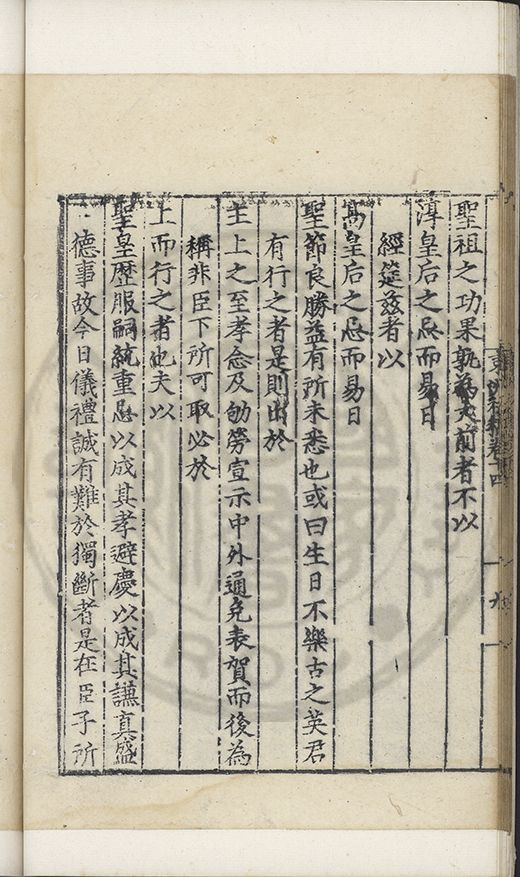 聖祖之功果孰為大前者不以
淳皇后之忌而易日
經筵茲者以
高皇后之忌而易日
聖節良勝益有所未悉也或曰生日不樂古之英君
有行之者是則出於
主上之至孝念及劬勞宣示中外通免表賀而後為
稱非臣下所可取必於
上而行之者也夫以
聖皇歷服嗣統重忌以成其孝避慶以成其謙真盛
德事故今日儀禮誠有難於獨斷者是在臣子所
卷十四
九